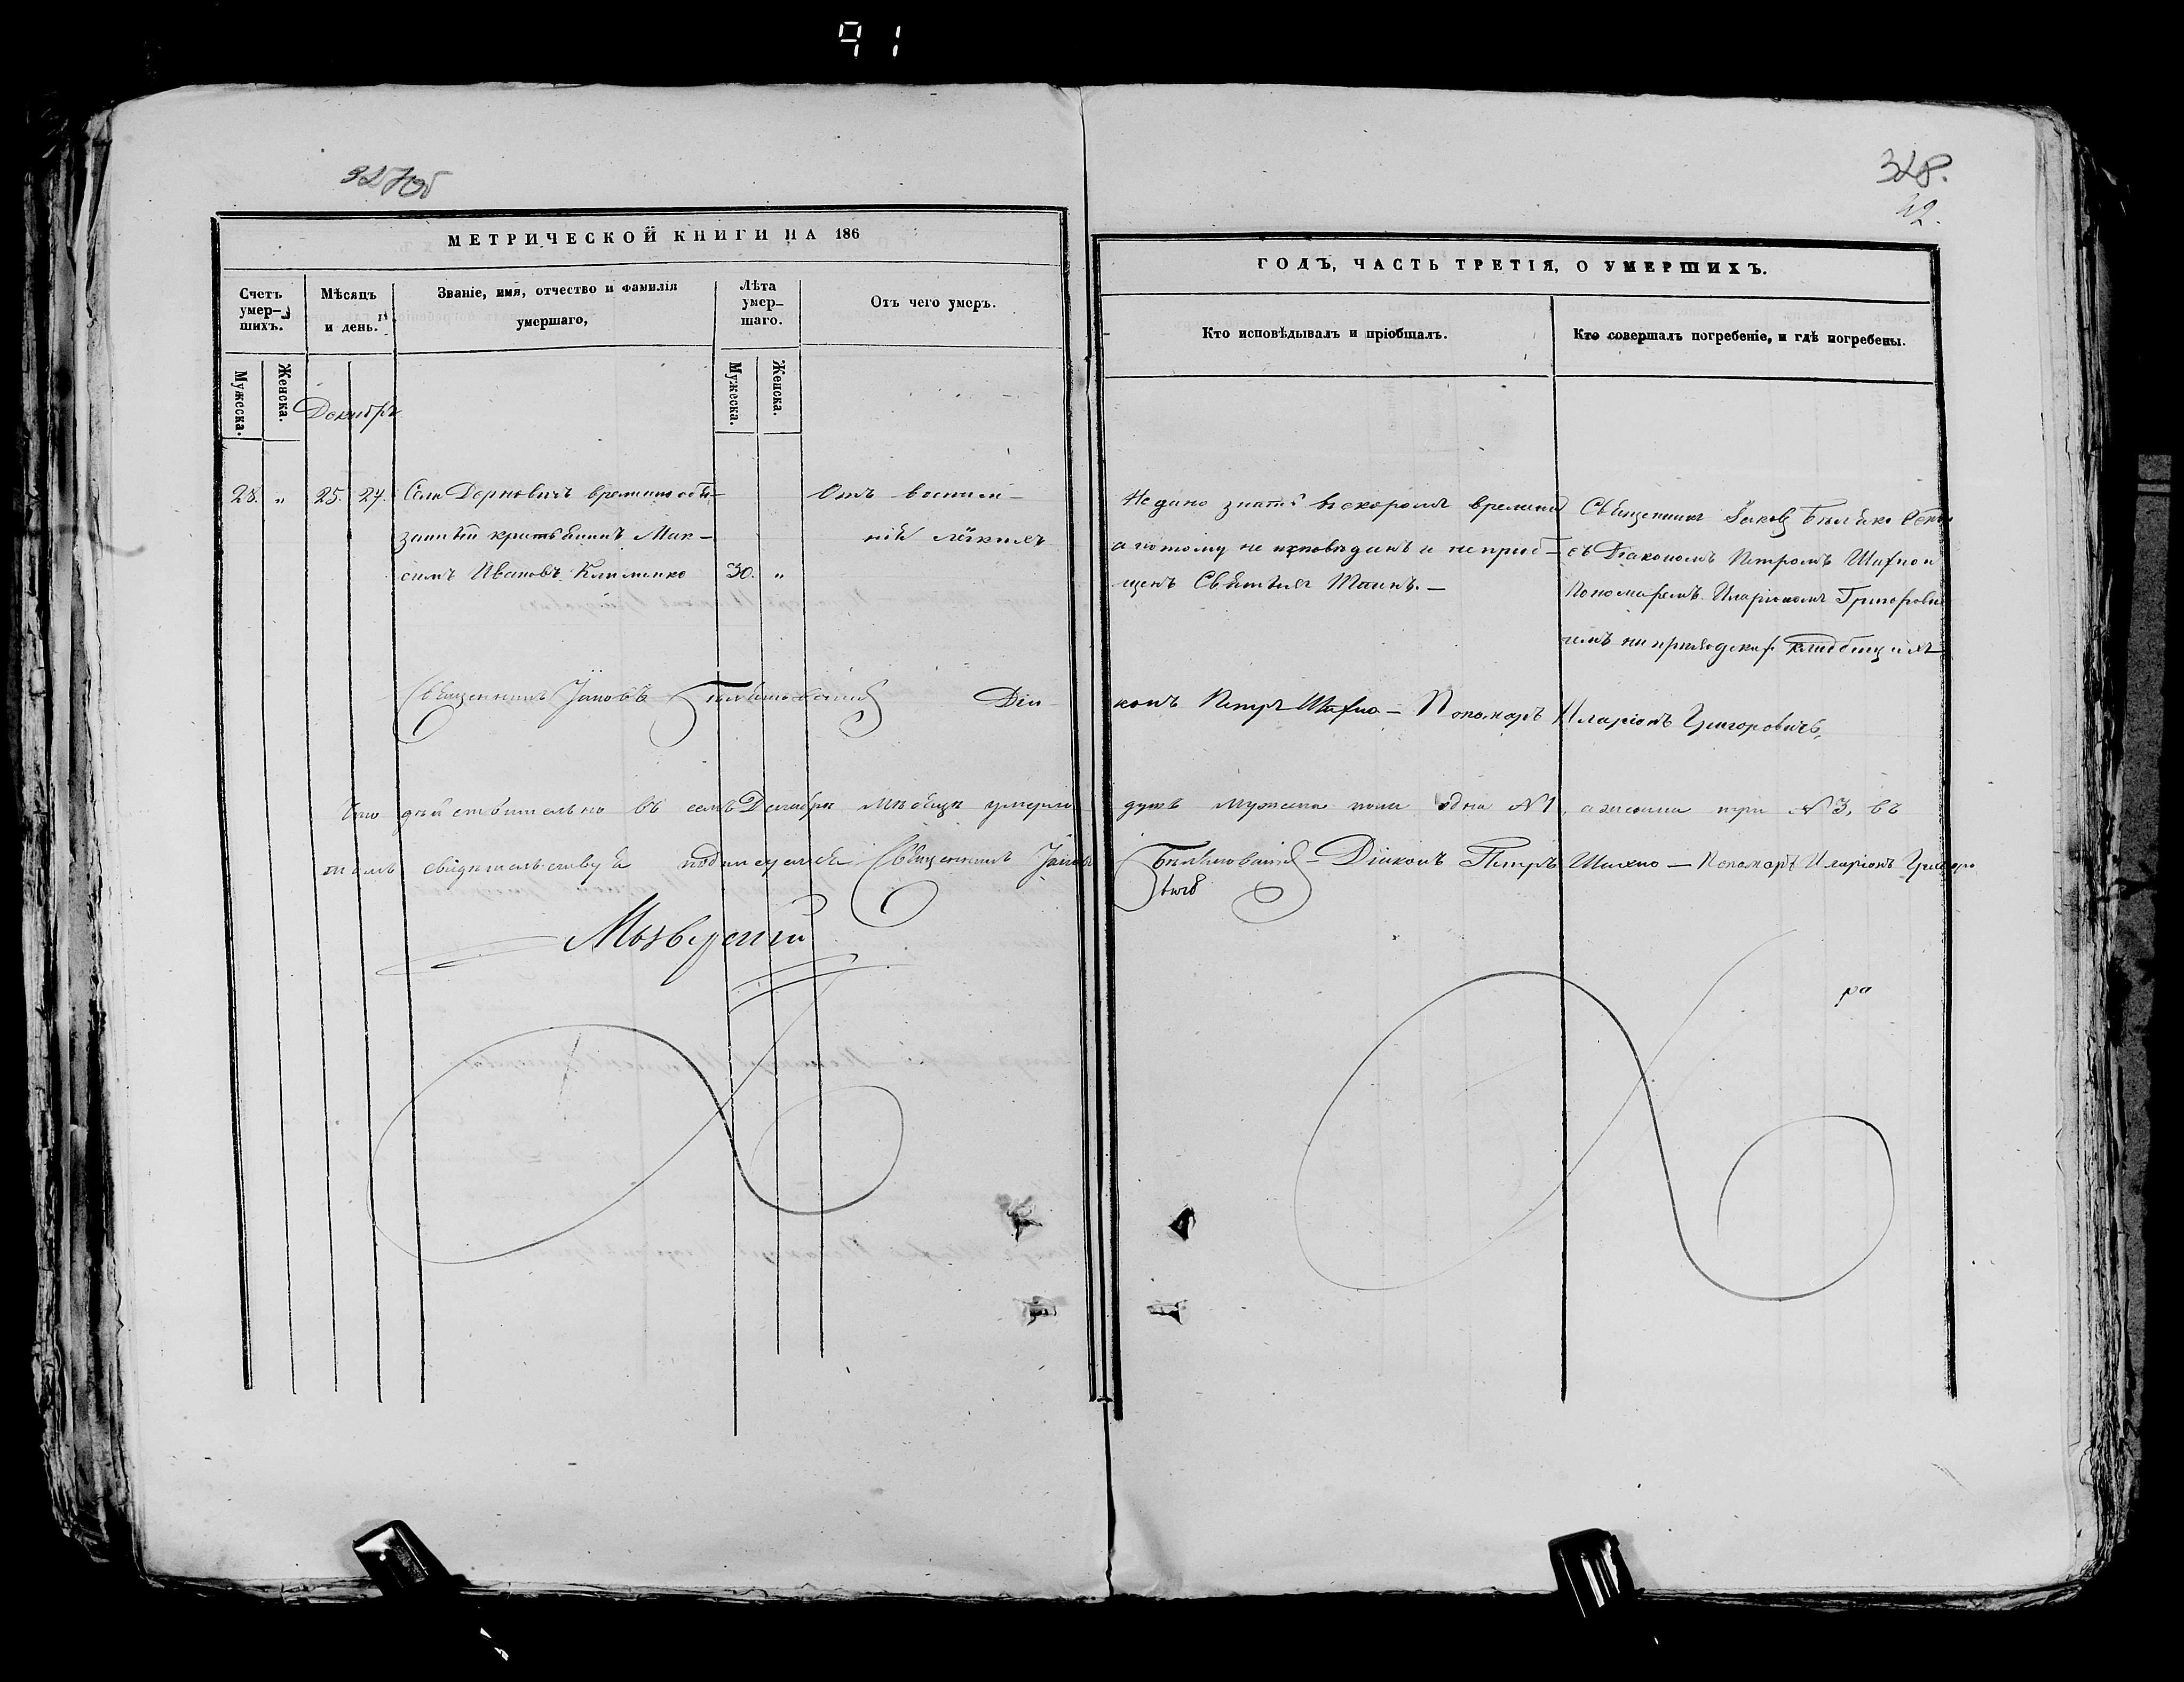 91
327об
328.
42.
МЕТРИЧЕСКОЙ КНИГИ НА 186
ГОДЪ, ЧАСТЬ ТРЕТІЯ, О УМЕРШИХЪ.
Счетъ умер-шихъ.
Мѣсяцъ и день.
Званіе, имя, отчество и фамилія умершаго,
Лѣта умер-шаго.
Отъ чего умеръ.
Кто исповѣдывалъ и пріобщалъ.
Кто совершалъ погребеніе, и гдѣ погребены.
Мужеска.
Женска.
Мужеска.
Женска.
Декабрь
28. " 25. 27. Села Дерновичъ временно обя-
занный крестьянинъ Мак-
симъ Ивановъ Клименко 30. "
Отъ воспале-
нія лёкихъ
Недано знать въ скоромъ времени
а потому не исповѣданъ и не приоб-
щенъ Святыхъ Таинъ. —
Священникъ Іаковъ
съ Діакономъ Петромъ Шихно и
Пономаремъ Иларіономъ Григорови-
чемъ на приходскихъ кладбищахъ
Священникъ Іаковъ Діа-
конъ Петръ Шихно — Пономарь Иларіонъ Григоровичъ,
Что дѣйствительно въ семъ Декабрѣ мѣсяцѣ умерло душъ мужеска пола одна №1, а женска три №3, въ
томъ свидетельствуя подписуемся Священникъ Іаковъ — Діаконъ Петръ Шихно — Пономарь Иларіонъ Григоро
вичъ
ра